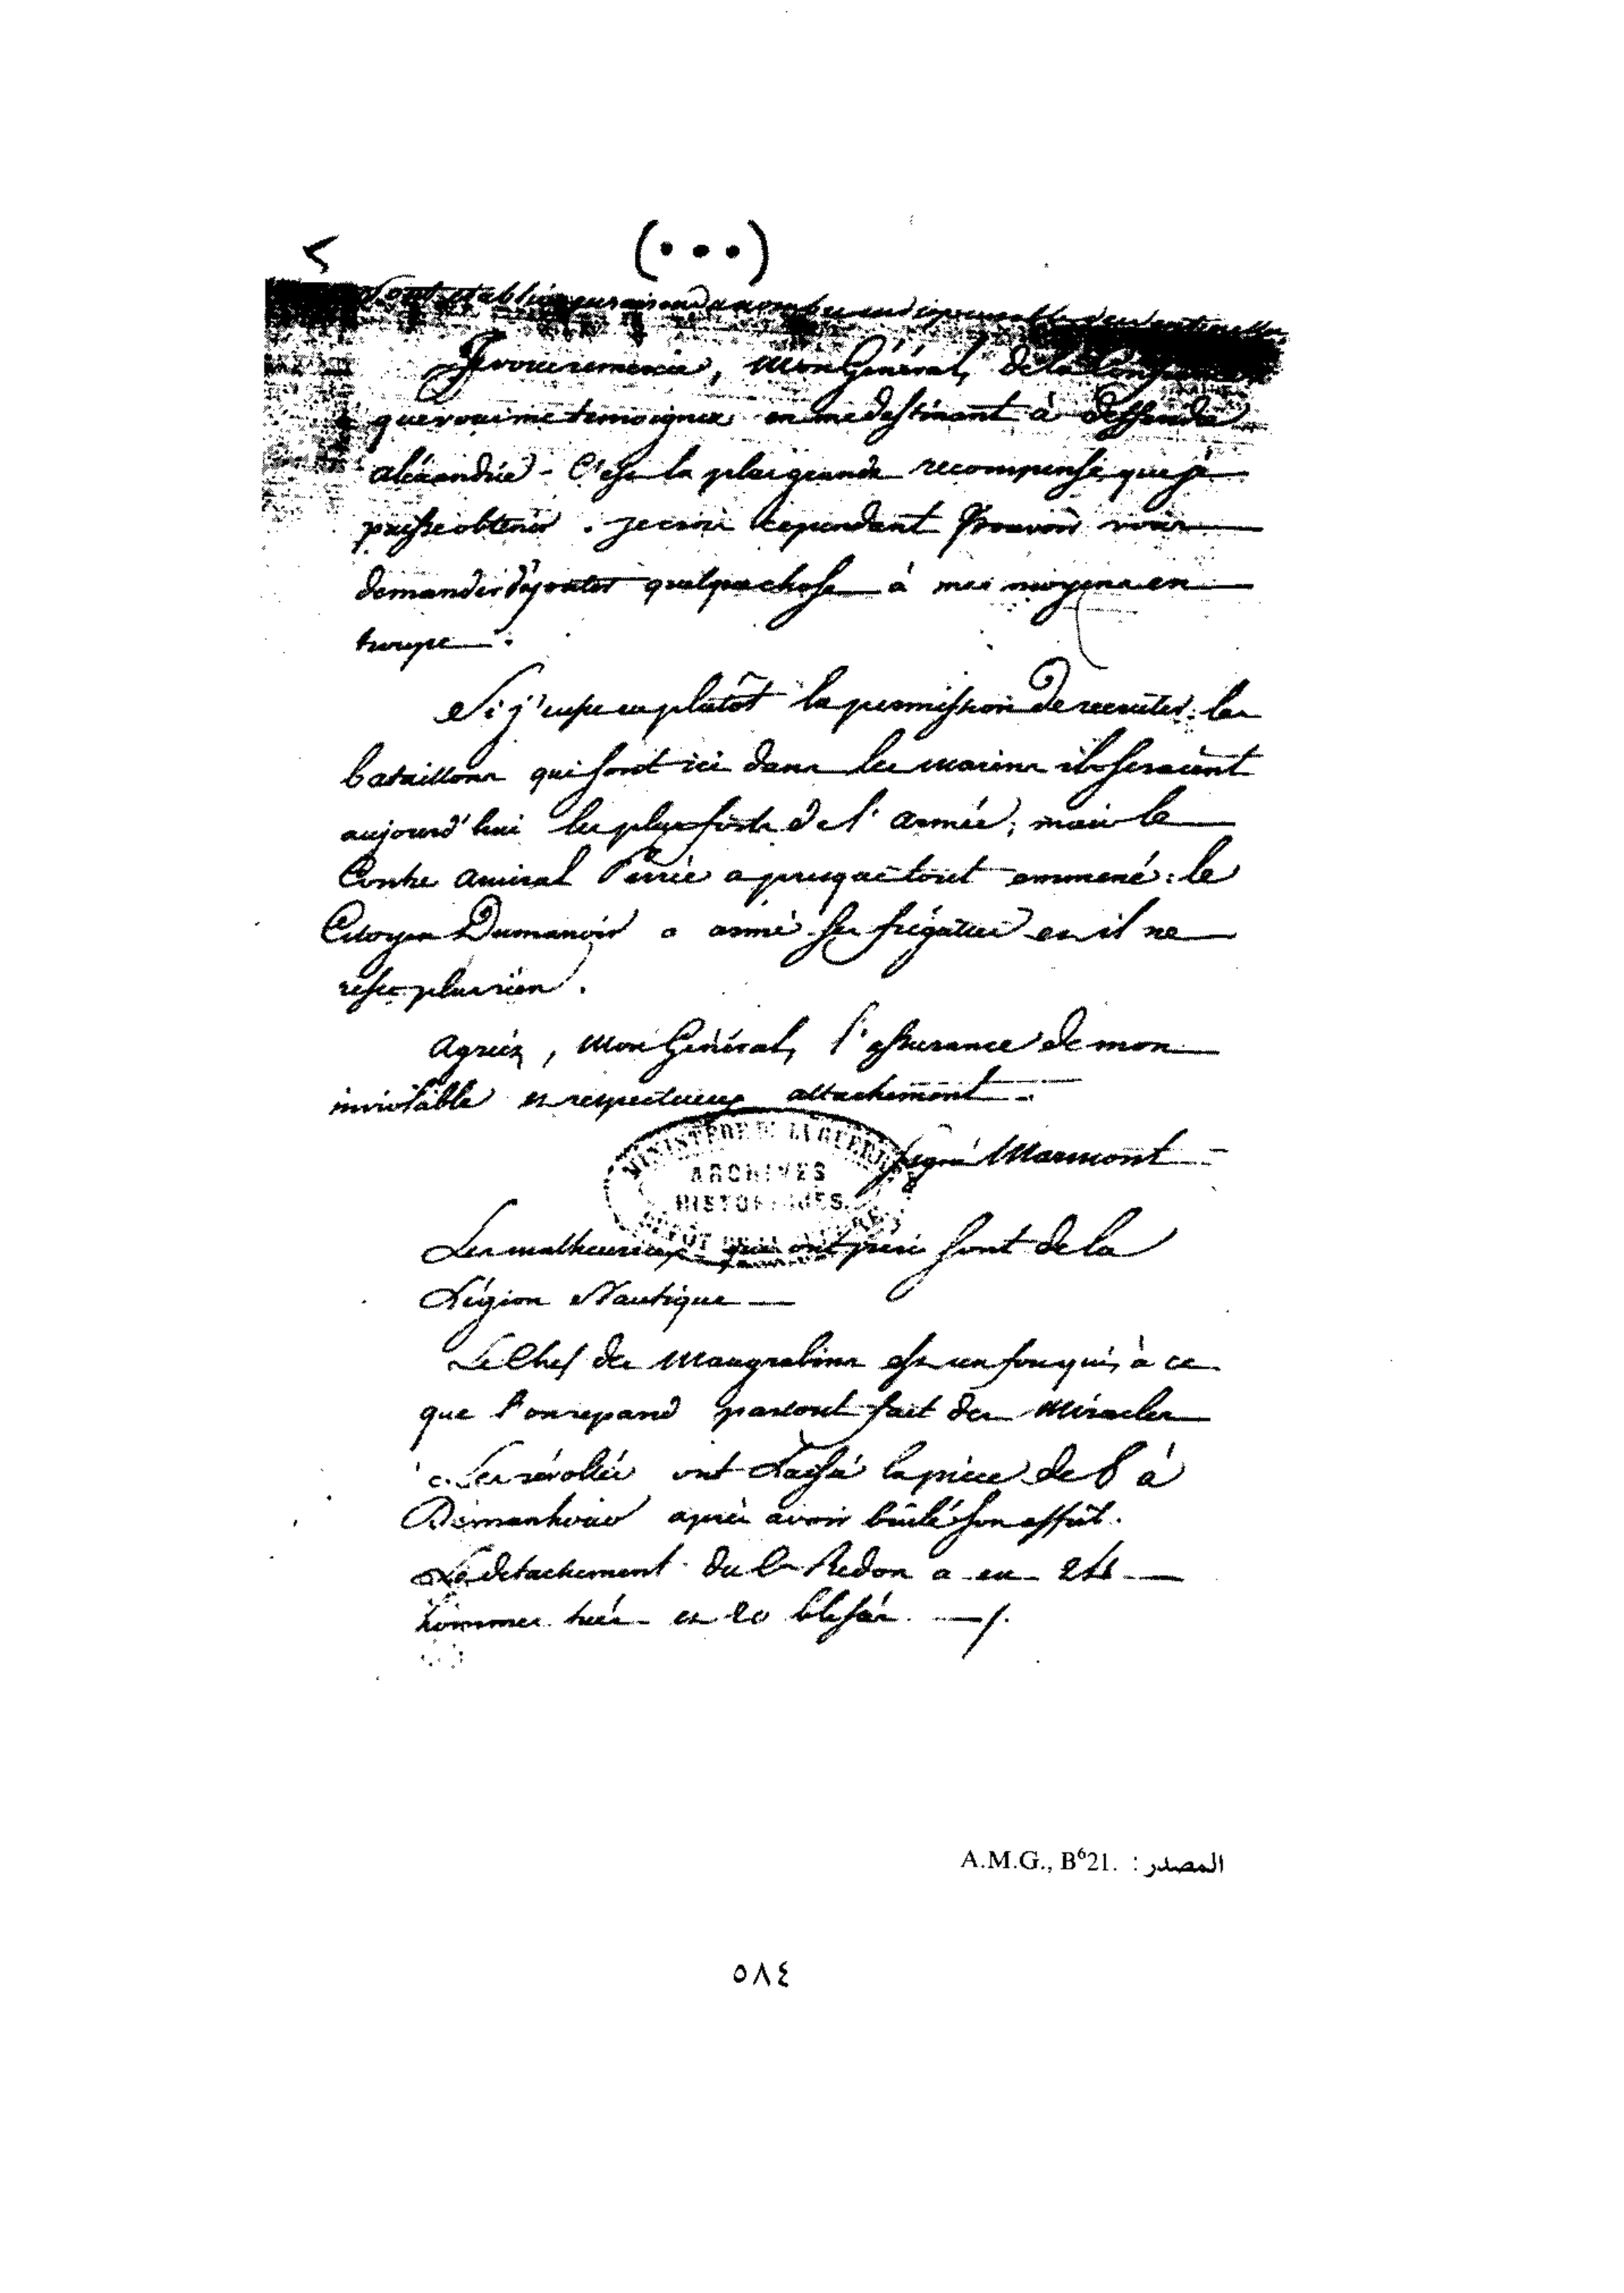 (...)
sont établis en raison du nombre indispensable des
Je vous remercie, mon Général, de la
que vous me temoignez en me destinant à deffendre
alexandrie - C'est la plus grande recompense que je
puisse obtenir . je crois cependant pouvoir vous
demander d'ajouter quelque chose à mes moyens en
troupe .
Si j'eusse eu plutôt la permission de recruter les
bataillons qui sont ici dans les marins ils seraient
aujourd'hui les plus forts de l'armée ; mais le
Contre amiral Perrée a presque tout emmené : le
Citoyen Dumanoir a armé ses frégattes et il ne
reste plus rien .
Agréez , mon Général, l'assurance de mon
inviolable et respectueux attachement .
signé Marmont
MINISTÈRE DE LA GUERRE
ARCHIVES
HISTORIQUES
DÉPÔT DE LA GUERRE
Les malheureux qui ont péri sont de la
Légion Nautique
Le Chef des Maugrabins est un fou qui, à ce
que l'on repand partout fait des Miracles
Les révoltés ont laissé la pièce de 8 à
Demanhour après avoir brûlé son affût.
Le detachement du Cn Redon a eu
hommes tués et 20 blessés. /.
A.M.G., B⁶21. : المصدر
٥٨٤